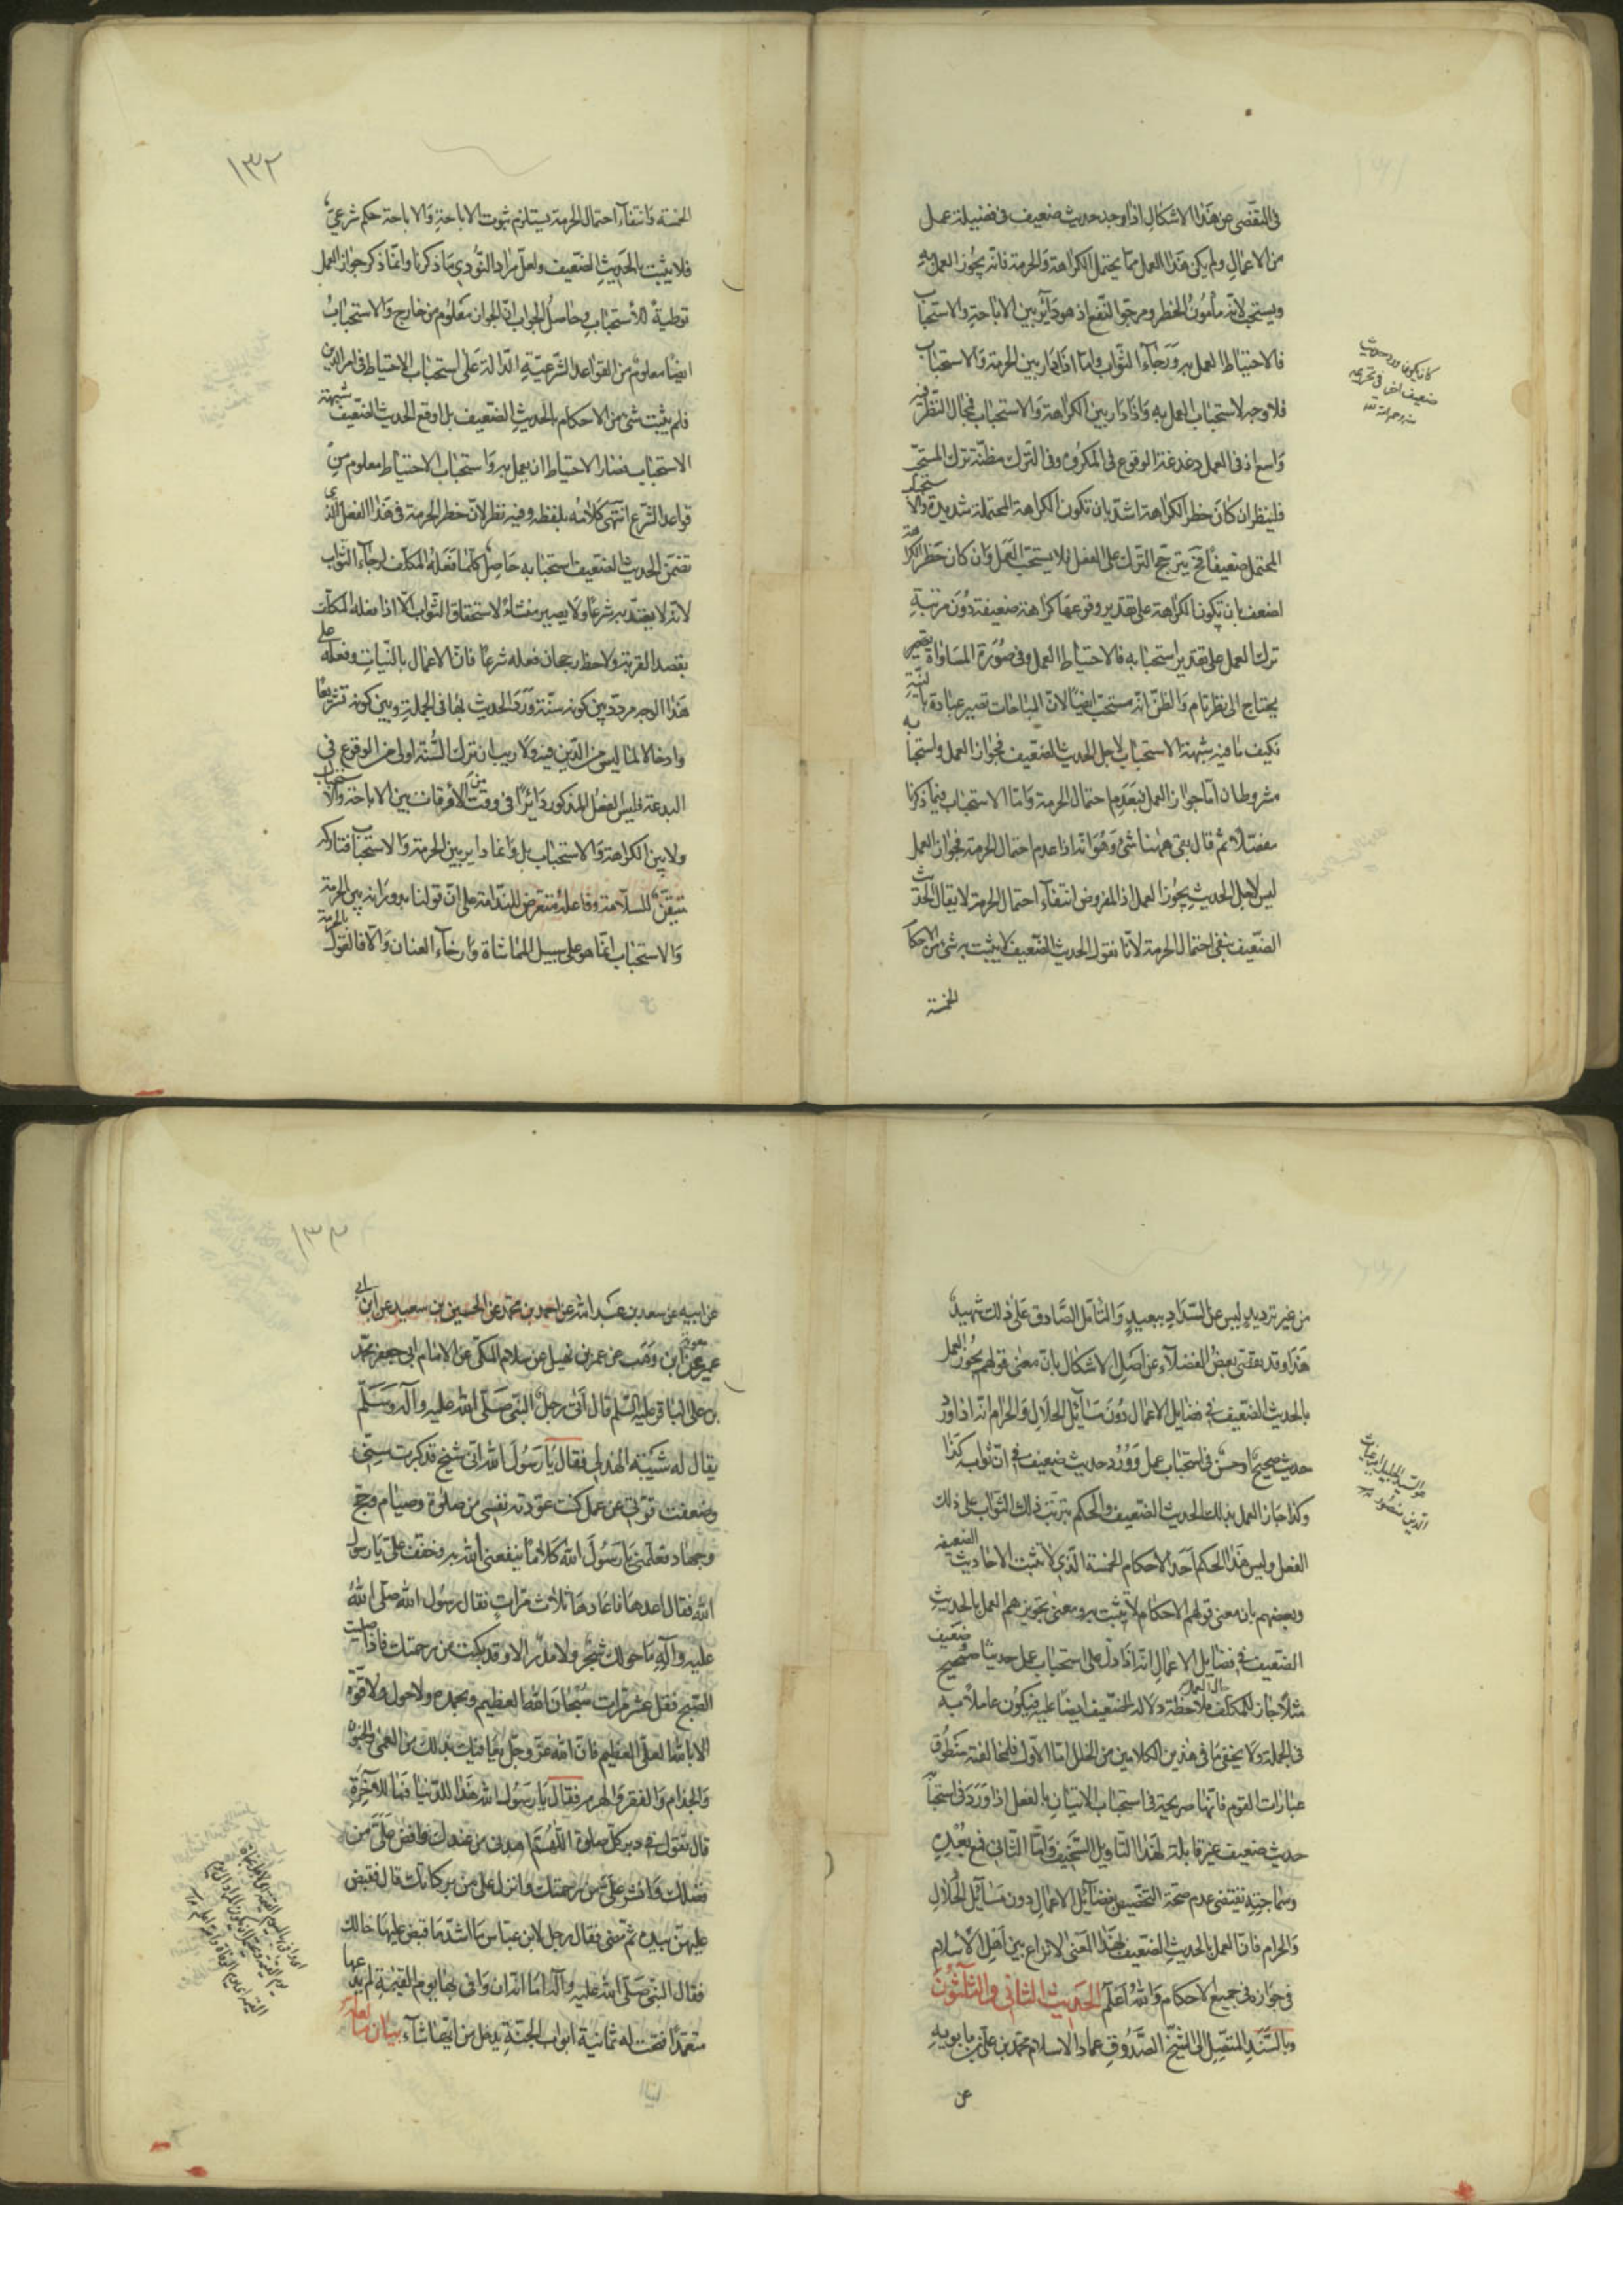 فى التفصى عن هذا الاشكال اذا وجد حديث ضعيف فى فضيلة عمل
من الاعمال ولم يكن هذا العمل مما يحتمل الكراهة والحرمة فانه يجوز العمل به
ويستحب لانه مأمون الخطر ومرجو النفع اذ هو دائر بين الاباحة والاستحباب
فالاحتياط العمل به ورجاء الثواب واما اذا دار بين الحرمة والاستحباب
فلا وجه لاستحباب العمل به واذا دار بين الكراهة والاستحباب فمجال النظر فيه
واسع اذ فى العمل دغدغة الوقوع فى المكروه وفى الترك مظنة ترك المستحب
فلينظر ان كان خطر الكراهة اشد بان تكون الكراهة المحتملة شديدة والاستحباب
المحتمل ضعيفا فح يترجح الترك على الفعل فلا يستحب العمل وان كان خطر الكراهة
اضعف بان تكون الكراهة على تقدير وقوعها كراهة ضعيفة دون مرتبة
ترك العمل على تقدير استحبابه فالاحتياط العمل وفى صورة المساواة
يحتاج الى نظر تام والظن انه مستحب ايضا لان المباحات تصير عبادة بالنية
فكيف ما فيه شبهة الاستحباب لاجل الحديث الضعيف فجواز العمل واستحبابه
مشروطان اما جواز العمل فبعدم احتمال الحرمة واما الاستحباب فبما ذكرنا
مفصلا ثم قال بقى ههنا شئ وهو انه اذا عدم احتمال الحرمة فجواز العمل
ليس لاجل الحديث يجوز العمل اذ المفروض انتفاء احتمال الحرمة لا يقال الحديث
الضعيف ينفى احتمال الحرمة لانا نقول الحديث الضعيف لا يثبت به شئ من الاحكام
الخمسة
كان يكون ورد حديث
ضعيف اخر فى تحريمه
منه رحمه الله
١٣٢
الخمسة وانتفاء احتمال الحرمة يستلزم ثبوت الاباحة والاباحة حكم شرعى
فلا يثبت بالحديث الضعيف ولعل مراد النوودى ما ذكرنا وانما ذكر جواز العمل
توطية للاستحباب وحاصل الجواب ان الجواز معلوم من خارج والاستحباب
ايضا معلوم من القواعد الشرعية الدالة على استحباب الاحتياط فى امر الدين
فلم يثبت شئ من الاحكام بالحديث الضعيف بل اوقع الحديث الضعيف شبهة
الاستحباب فصار الاحتياط ان يعمل به واستحباب الاحتياط معلوم من
قواعد الشرع انتهى كلامه بلفظه وفيه نظر لان خطر الحرمة فى هذا الفعل الذى
تضمن الحديث الضعيف استحبابه حاصل كلما فعله المكلف لرجاء الثواب
لانه لا يعتد به شرعا ولا يصير منشاء لاستحقاق الثواب الا اذا فعله المكلف
بقصد القربة ولاحظ رجحان فعله شرعا فان الاعمال بالنيات وفعله على
هذا الوجه مردد بين كونه سنة ورد الحديث بها فى الجملة وبين كونه تشريعا
وادخالا لما ليس من الدين فيه ولا ريب ان ترك السنة اولى من الوقوع فى
البدعة فليس الفعل المذكور دائرا فى وقت من الاوقات بين الاباحة والاستحباب
ولا بين الكراهة والاستحباب بل وانما دائر بين الحرمة والاستحباب فتاركه
متيقن للسلامة وفاعله متعرض للندامة على ان قولنا بدورانه بين الحرمة
والاستحباب انما هو على سبيل المماشاة وارخاء العنان والا فالقول بالحرمة
من غير ترديد ليس عن السداد ببعيد والتأمل الصادق على ذلك شهيد
هذا وقد تفصى بعض الفضلاء عن اصل الاشكال بان معنى قولهم يجوز العمل
بالحديث الضعيف فى فضايل الاعمال دون مسائل الحلال والحرام انه اذا ورد
حديث صحيح او حسن فى استحباب عمل وورود حديث ضعيف فى ان ثوابه كذا
وكذا جاز العمل بذلك الحديث الضعيف والحكم بترتب ذلك الثواب على ذلك
الفعل وليس هذا الحكم احد الاحكام الخمسة الذى لا يثبت الاحاديث الضعيفة
وبعضهم بان معنى قولهم الاحكام لا يثبت به ومعنى تجويزهم العمل بالحديث
الضعيف فى فضايل الاعمال انه اذا دل على استحباب عمل حديثا صحيح وضعيف
مثلا جاز للمكلف حال العمل ملاحظة دلالة الضعيف ايضا عليه فيكون عاملا به
فى الجملة ولا يخفى ما فى هذين الكلامين من الخلل اما الاول فلمخالفته منطوق
عبارات القوم فانها صريحة فى استحباب الاتيان بالفعل اذا ورد فى استحبابه
حديث ضعيف غير قابلة لهذا التاويل السخيف واما الثانى فمع بعده
وسماجته يقتضى عدم صحة التخصيص بفضائل الاعمال دون مسائل الحلال
والحرام فان العمل بالحديث الضعيف بهذا المعنى لا نزاع بين اهل الاسلام
فى جوازه فى جميع الاحكام والله اعلم الحديث الثانى والثلثون
وبالسند المتصل الى الشيخ الصدوق عماد الاسلام محمد بن على بن بابويه
عن
هو السيد الجليل امير غياث
الدين منصور
١٣٣
عن ابيه عن سعد بن عبد الله عن احمد بن محمد عن الحسين بن سعيد عن ابن ابى
عمير عن معوية ابن وهب عن عمر بن نهيل عن سلام المكى عن الامام ابى جعفر محمد
بن على الباقر عليه السلم قال اتى رجل النبى صلى الله عليه وآله وسلم
يقال له شيبة الهذلى فقال يا رسول الله انى شيخ قد كبرت سنى
وضعفت قوتى عن عمل كنت عودته نفسى من صلوة وصيام وحج
وجهاد فعلمنى يا رسول الله كلاما ينفعنى الله به وخفف على يا رسول
الله فقال اعدها فاعادها ثلاث مرات فقال رسول الله صلى الله
عليه وآله ما حولك شجر ولا مدر الا وقد بكت من رحمتك فاذا صليت
الصبح فقل عشر مرات سبحان الله العظيم وبحمده ولا حول ولا قوة
الا بالله العلى العظيم فان الله عز وجل يعافيك بذلك من العمى والجنون
والجذام والفقر والهرم فقال يا رسول الله هذا للدنيا فما للاخرة
قال تقول فى دبر كل صلوة اللهم اهدنى من عندك وافض على من
فضلك وانشر على من رحمتك وانزل على من بركاتك قال فقبض
عليهن بيده ثم مضى فقال رجل لابن عباس ما اشد ما قبض عليها خالك
فقال النبى صلى الله عليه وآله اما انه ان وافى بها يوم القيمة لم يدعها
متعمدا فتحت له ثمانية ابواب الجنة يدخل من ايها شاء بيان ما لعله